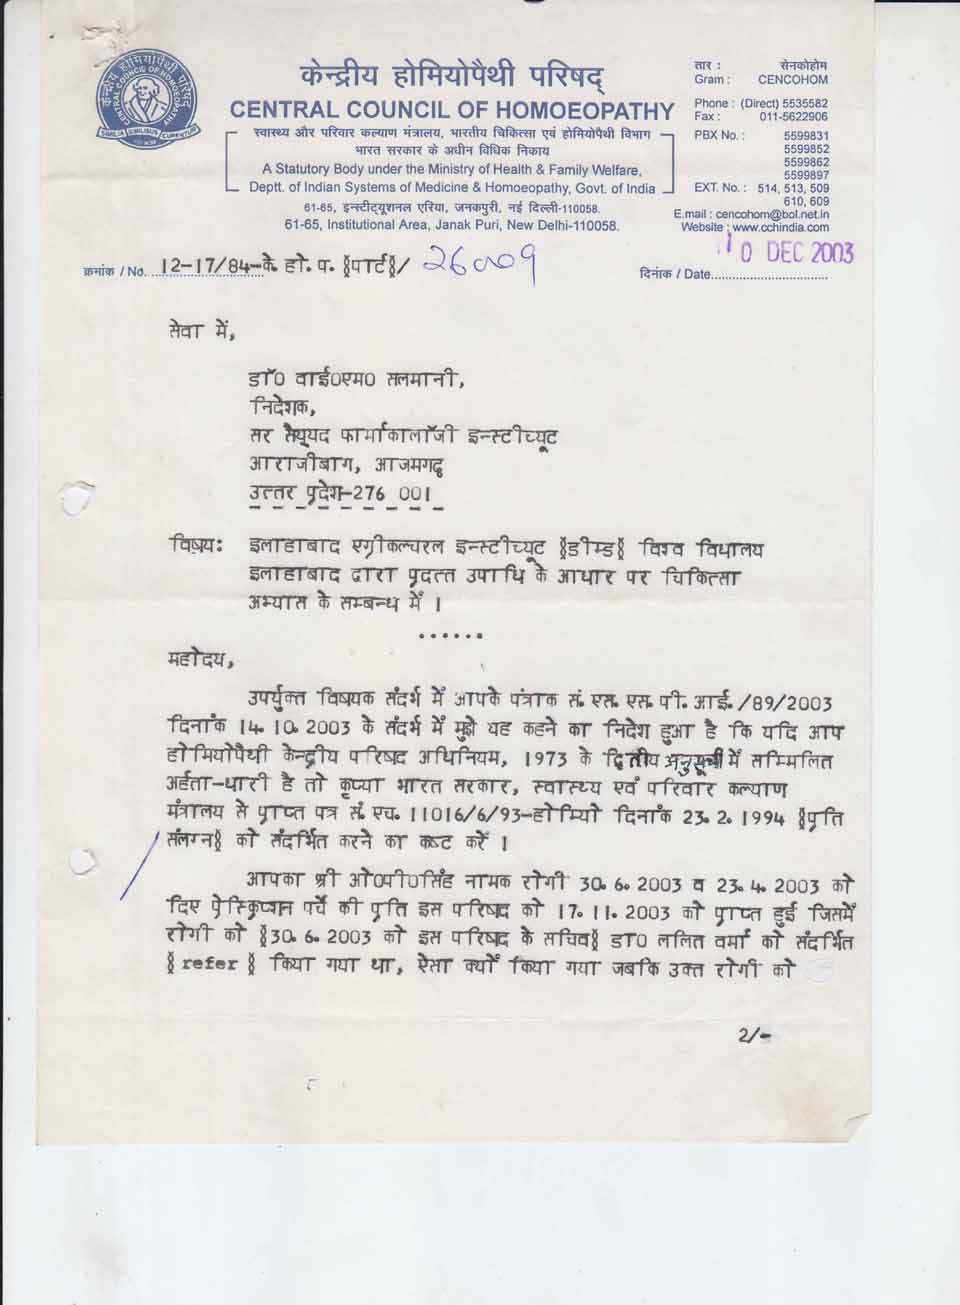 केन्द्रीय होमियोपैथी परिषद्
CENTRAL COUNCIL OF HOMOEOPATHY
स्वास्थ्य और परिवार कल्याण मंत्रालय, भारतीय चिकित्सा एवं होमियोपैथी विभाग
भारत सरकार के अधीन विधिक निकाय
A Statutory Body under the Ministry of Health & Family Welfare,
Deptt. of Indian Systems of Medicine & Homoeopathy, Govt. of India
61-65, इन्स्टीट्यूशनल एरिया, जनकपुरी, नई दिल्ली-110058.
61-65, Institutional Area, Janak Puri, New Delhi-110058.
होमियोपैथी
CENTRAL COUNCIL OF HOMOEOPATHY
SIMILIA SIMILIBUS CURENTUR
तार : सेनकोहोम
Gram : CENCOHOM
Phone : (Direct) 5535582
Fax : 011-5622906
PBX No. : 5599831
5599852
5599862
5599897
EXT. No. : 514, 513, 509
610, 609
E.mail : cencohom@bol.net.in
Website : www.cchindia.com
10 DEC 2003
क्रमांक / No. 12-17/84-के. हो. प. §पार्ट§/
दिनांक / Date
सेवा में,
डाॅ0 वाई0एम0 सलमानी,
निदेशक,
सर सैय्यद फार्माकालॉजी इन्स्टीच्यूट
आराजीबाग, आजमगढ़
उत्तर प्रदेश-276 001
विषय: इलाहाबाद एग्रीकल्चरल इन्स्टीच्यूट §डीम्ड§ विश्व विधालय
इलाहाबाद द्वारा प्रदत्त उपाधि के आधार पर चिकित्सा
अभ्यास के सम्बन्ध में ।
......
महोदय,
उपर्युक्त विषयक संदर्भ में आपके पंत्राक सं. एस. एस. पी. आई. /89/2003
दिनांक 14. 10. 2003 के संदर्भ में मुझे यह कहने का निदेश हुआ है कि यदि आप
होमियोपैथी केन्द्रीय परिषद अधिनियम, 1973 के द्वितीय अनुसूची में सम्मिलित
अर्हता-धारी है तो कृप्या भारत सरकार, स्वास्थ्य एवं परिवार कल्याण
मंत्रालय से प्राप्त पत्र सं. एच. 11016/6/93-होम्यिो दिनांक 23. 2. 1994 §प्रति
संलग्न§ को संदर्भित करने का कष्ट करें ।
आपका श्री ओ0पी0सिंह नामक रोगी 30. 6. 2003 व 23. 4. 2003 को
दिए प्रेस्क्रिप्शन पर्चे की प्रति इस परिषद को 17. 11. 2003 को प्राप्त हुई जिसमें
रोगी को §30. 6. 2003 को इस परिषद के सचिव§ डा0 ललित वर्मा को संदर्भित
§ refer § किया गया था, ऐसा क्यों किया गया जबकि उक्त रोगी को
2/-